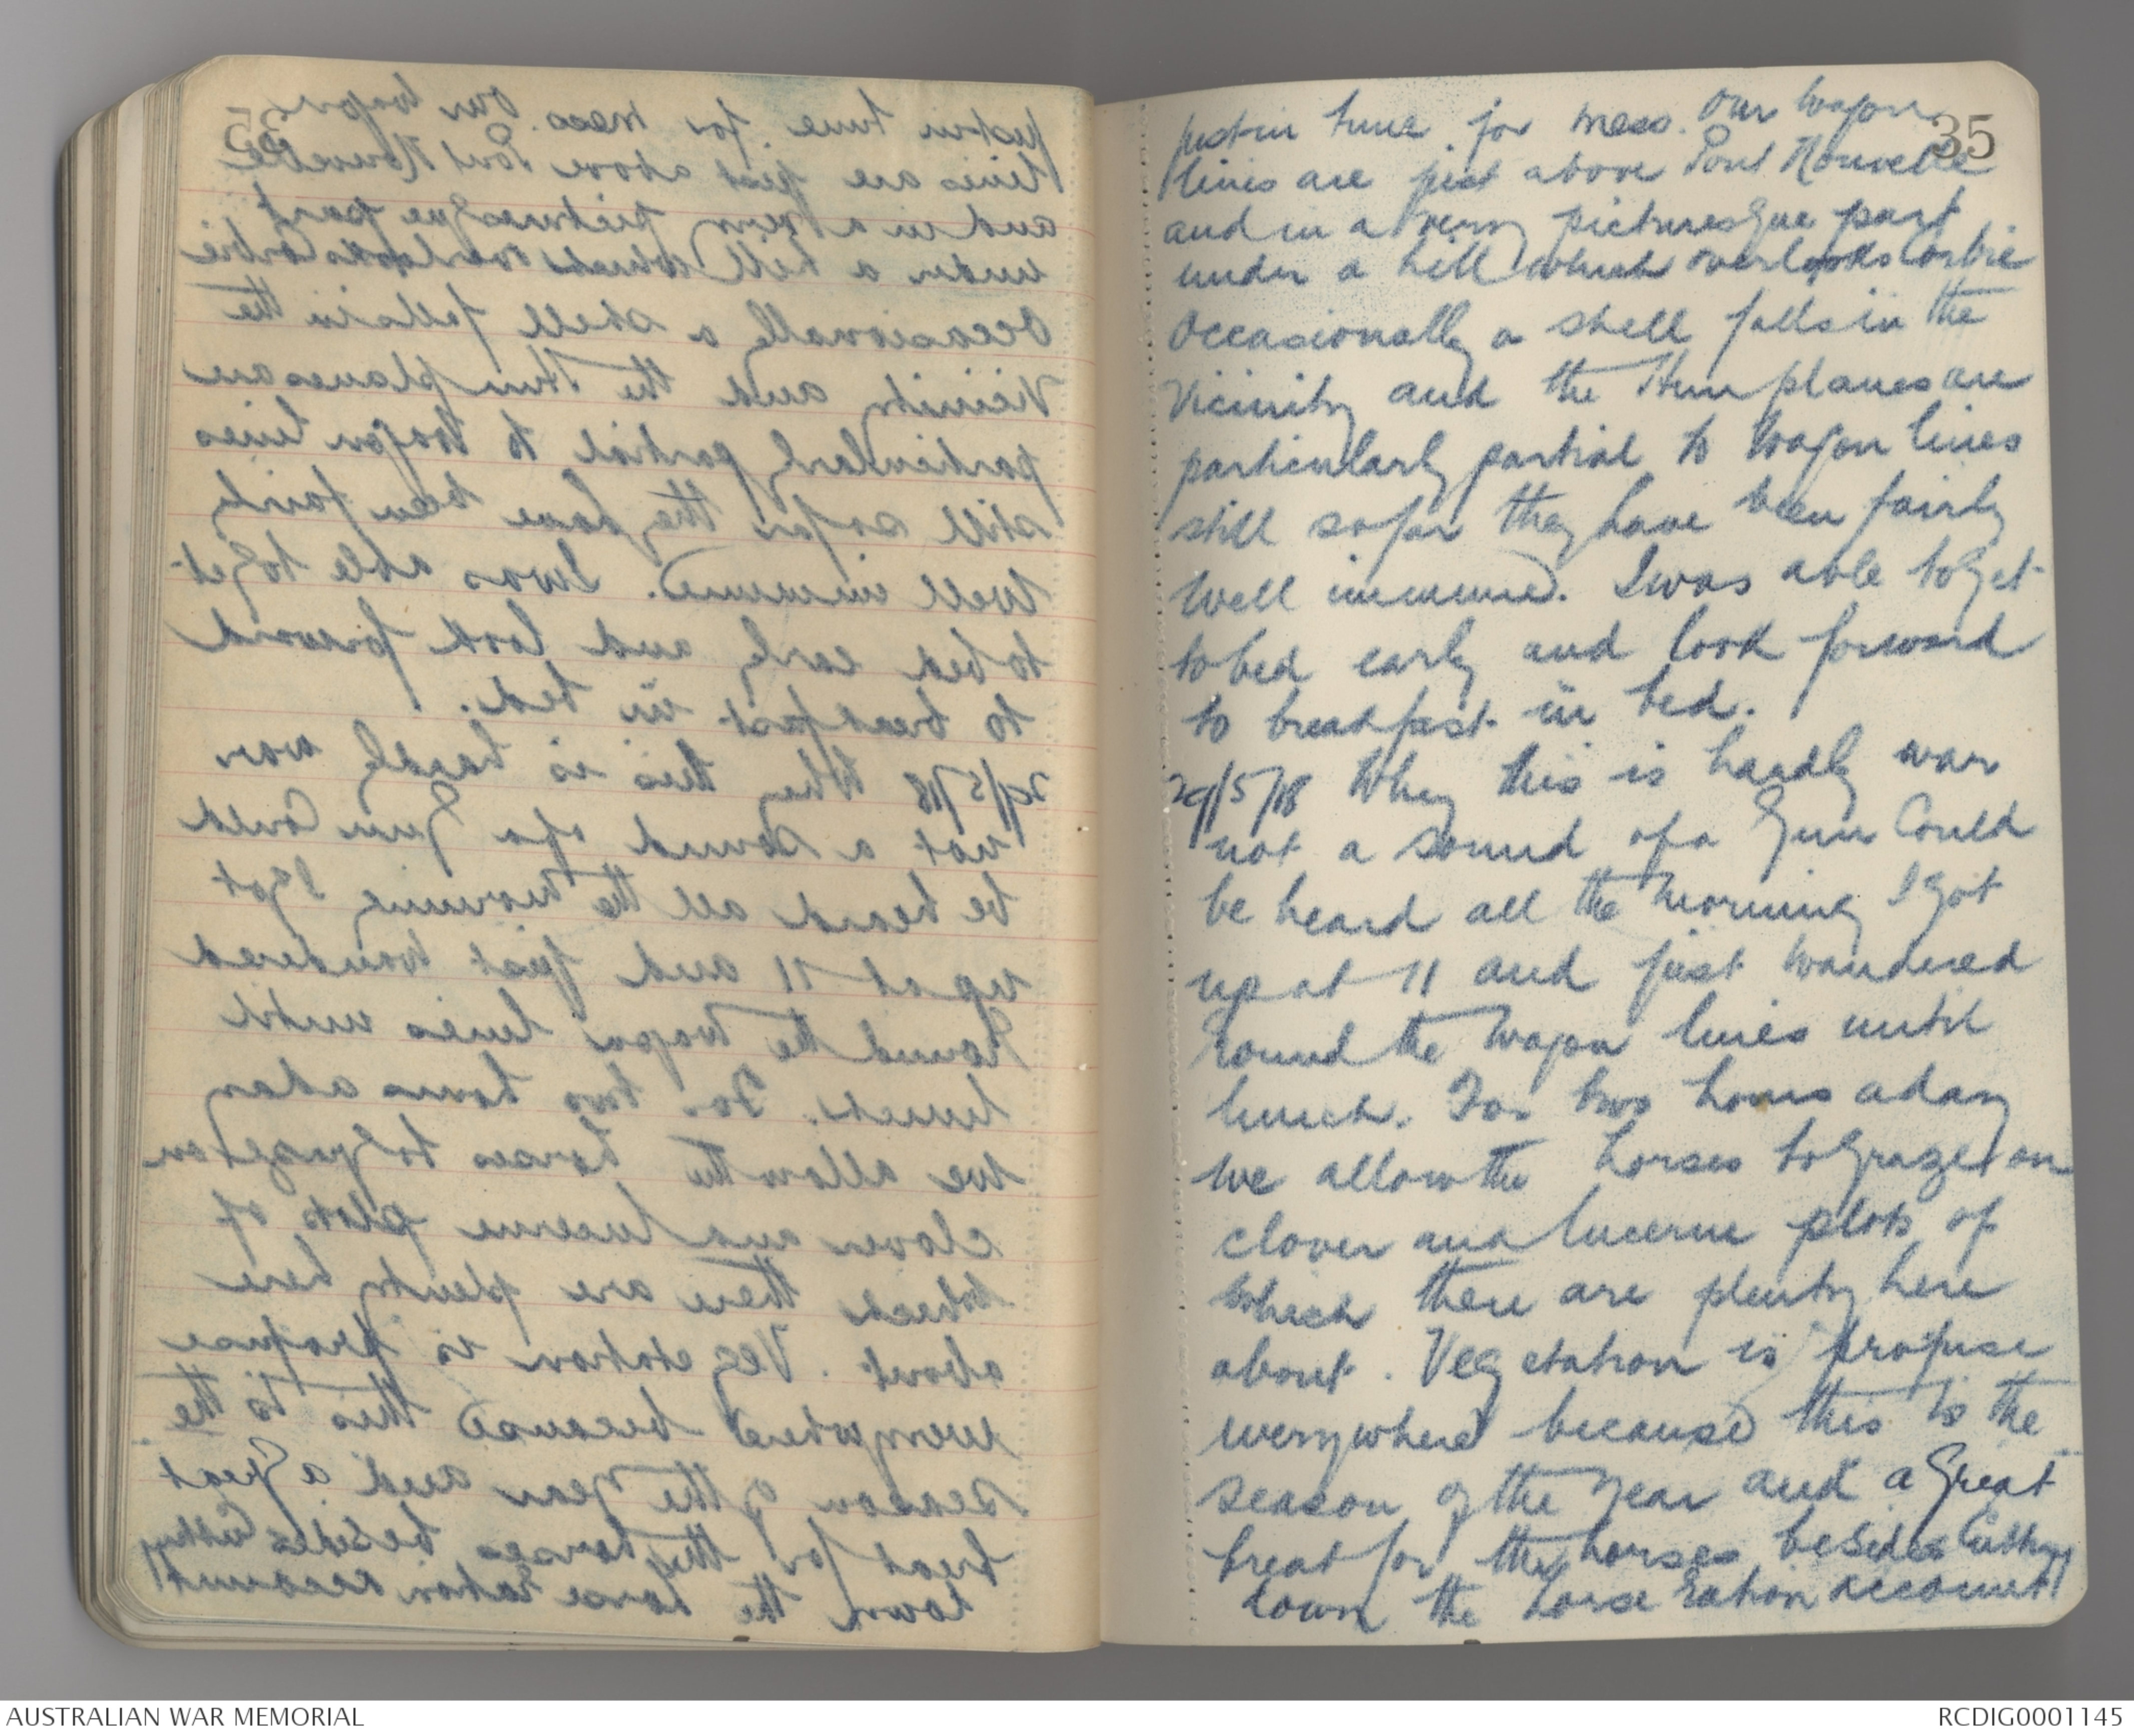 35
just in time for mess. Our wagon
lines are just above Pont Nouvelle
and in a very picturesque part
under a hill which overlooks Corbie
Occasionally a shell falls in the
vicinity and the Hun planes are
particularly partial to wagon lines
still so far they have been fairly
well immune. I was able to get
to bed early and look forward
to breakfast in bed.
29/5/18 Why this is hardly war
not a sound of a gun could
be heard all the morning I got
up at 11 and just wandered
round the wagon lines until
lunch. For two hours a day
we allow the horses to graze on
clover and lucerne plots of
which there are plenty here
about. Vegetation is profuse
everywhere because this is the
season of the year and a great
treat for the horses besides cutting
down the horse ration account
AUSTRALIAN WAR MEMORIAL
RCDIG0001145